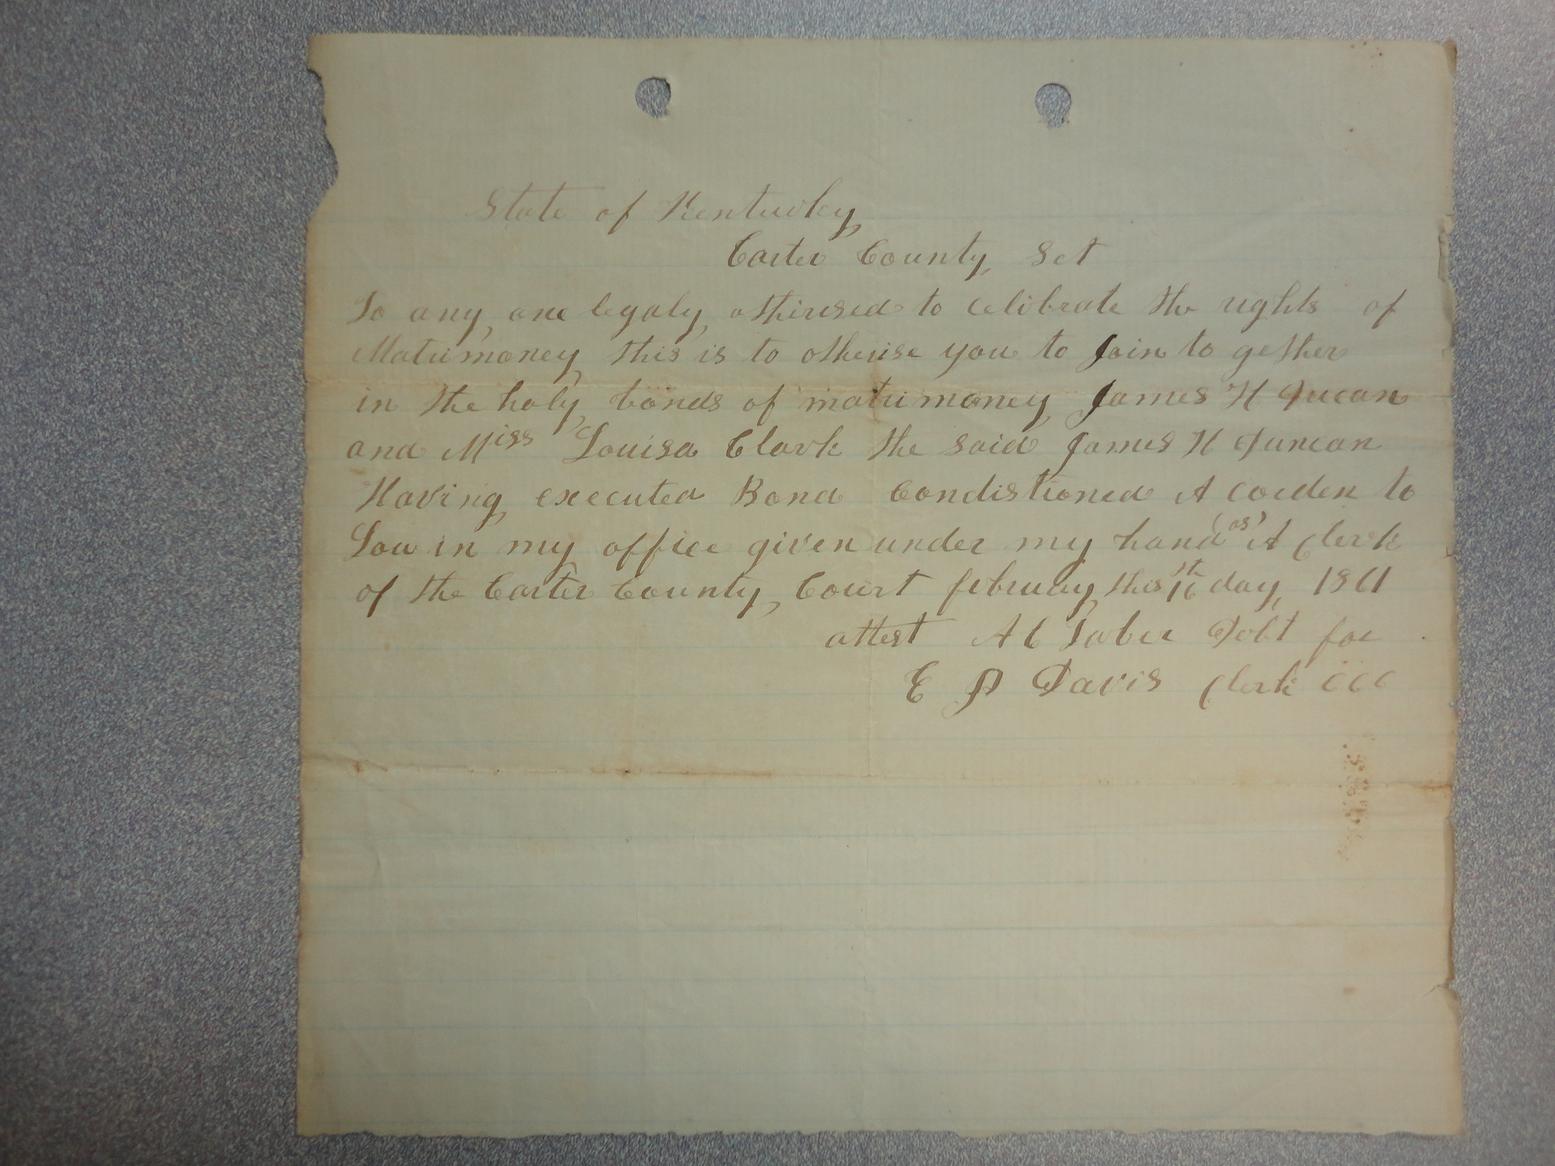 State of Kentucky,
Carter County, Sct
To any, one legaly, othirised to celibrate the rights of
Matrimoney this is to otherise you to Join to gether
in the holy, bonds of matrimoney James H
and Miss Louisa Clark the said James H Duncan
Having, executed Bond Condistioned A corden to
Low in my office given under my hand (as) A Clerk
of the Carter County, Court february this 16 day, 1861
attest A C for
E D Davis Clerk CCC